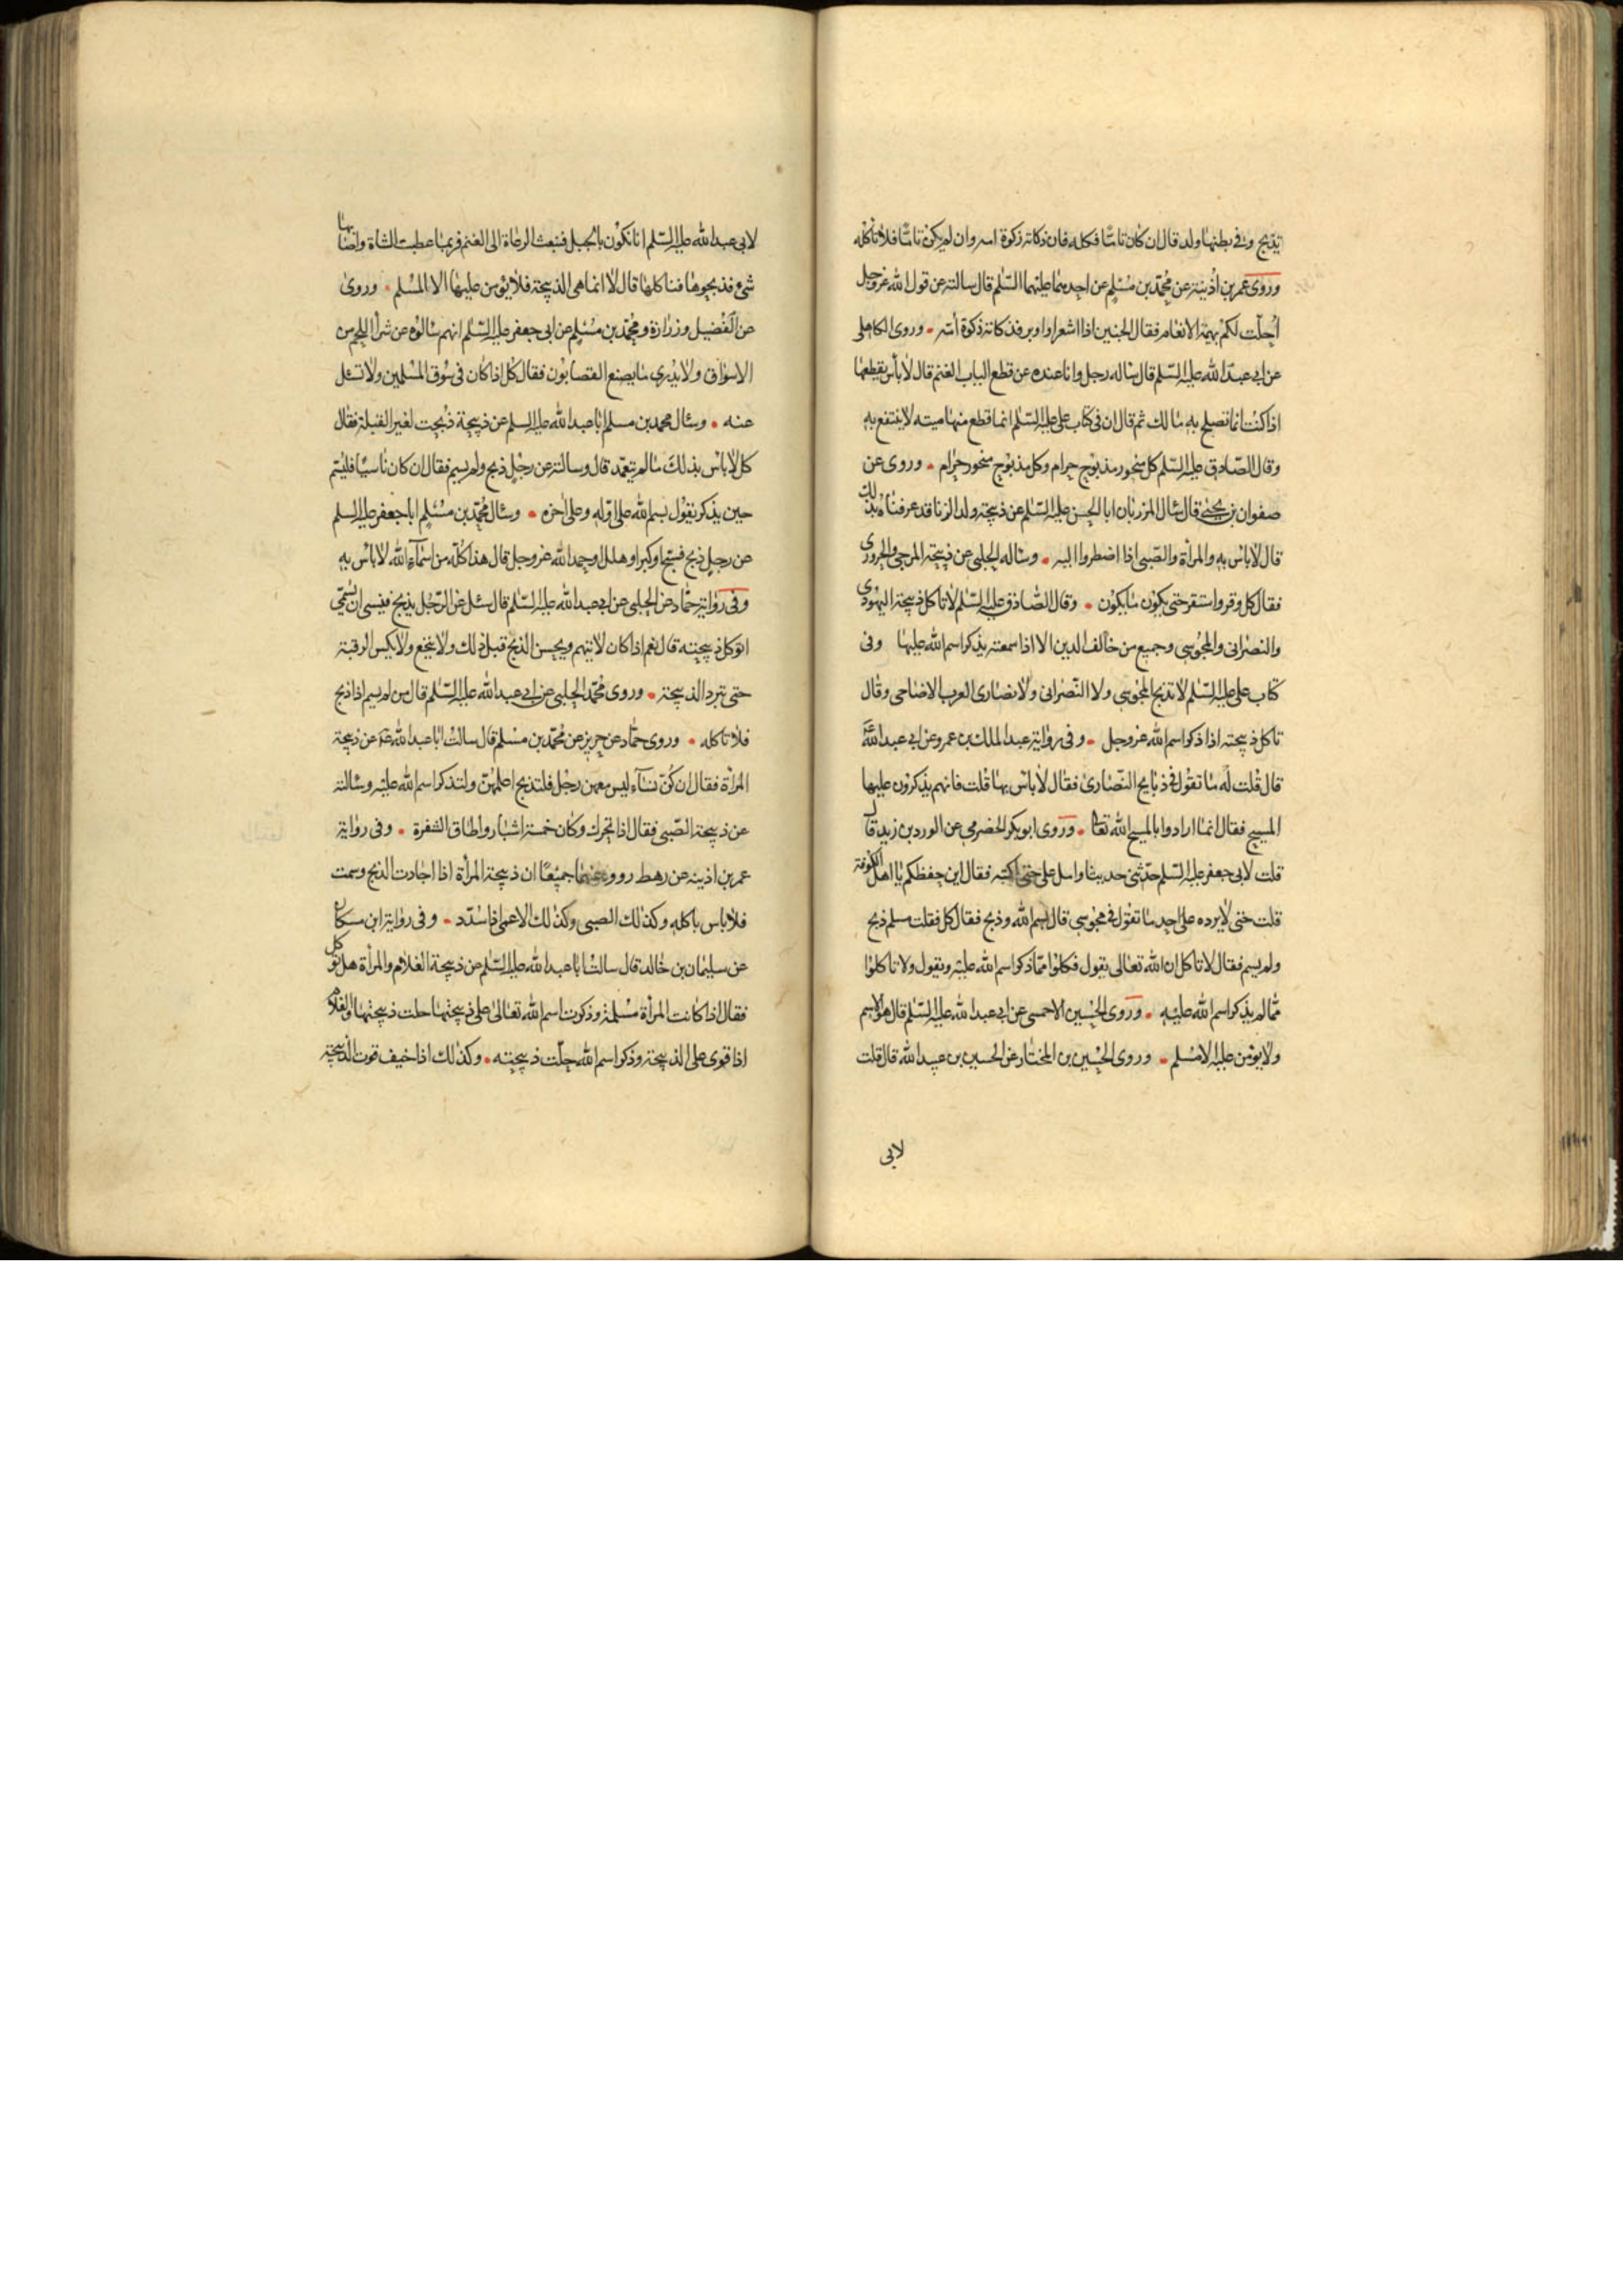 تذبح وفي بطنها ولد قال ان كان تاما فكله فان ذكاته زكوة امه وان لم يكن تاما فلا تاكله
وروى عمر بن اذينة عن محمد بن مسلم عن احدهما عليهما السلم قال سالته عن قول الله عزوجل
احلت لكم بهيمة الانعام فقال الجنين اذا اشعر او اوبر فذكاته ذكوة امه وروى الكاهلى
عن ابي عبد الله عليه السلم قال ساله رجل وانا عنده عن قطع اليات الغنم قال لا بأس بقطعها
اذا كنت انما تصلح به مالك ثم قال ان في كتاب على عليه السلم انما قطع منها ميته لا ينتفع به
وقال الصادق عليه السلم كل منحور مذبوح حرام وكل مذبوح منحور حرام وروى عن
صفوان بن يحيى قال سال المرزبان ابا الحسن عليه السلم عن ذبيحة ولد الزنا قد عرفناه بذلك
قال لا باس به والمرأة والصبى اذا اضطروا اليه وساله الحلبى عن ذبيحة المرجى والحرورى
فقال كل وقر واستقر حتى يكون ما يكون وقال الصادق عليه السلم لا تاكل ذبيحة اليهودى
والنصرانى والمجوسى وجميع من خالف الدين الا اذا سمعته يذكر اسم الله عليها وفى
كتاب على عليه السلم لا تذبح المجوسى ولا النصرانى ولا نصارى العرب الاضاحى وقال
تاكل ذبيحته اذا ذكر اسم الله عزوجل وفى رواية عبد الملك بن عمرو عن ابى عبد الله ع
قال قلت له ما تقول فى ذبايح النصارى فقال لا باس بها قلت فانهم يذكرون عليها
المسيح فقال انما ارادوا بالمسيح الله تعا وروى ابو بكر الحضرمى عن الورد بن زيد قال
قلت لابى جعفر عليه السلم حدثنى حديثا واسل على حتى اكتبه فقال اين حفظكم يا اهل الكوفة
قلت حتى لا يرده على احد ما تقول فى مجوسى قال بسم الله وذبح فقال كل فقلت مسلم ذبح
ولم يسم فقال لا تاكل ان الله تعالى يقول فكلوا مما ذكر اسم الله عليه ويقول ولا تاكلوا
مما لم يذكر اسم الله عليه وروى الحسين الاحمسى عن ابى عبد الله عليه السلم قال هو الاسم
ولا يؤمن عليه الا مسلم وروى الحسين بن المختار عن الحسين بن عبيد الله قال قلت
لابى
لابى عبد الله عليه السلم انا نكون بالجبل فنبعث الرعاة الى الغنم فربما عطبت الشاة واصابها
شىء فذبحوها فناكلها قال لا انما هى الذبيحة فلا يؤمن عليها الا المسلم وروى
عن الفضيل وزرارة ومحمد بن مسلم عن ابى جعفر عليه السلم انهم سالوه عن شراء اللحم من
الاسواق ولا يدرى ما يصنع القصابون فقال كل اذا كان فى سوق المسلمين ولا تسئل
عنه وسال محمد بن مسلم ابا عبد الله عليه السلم عن ذبيحة ذبحت لغير القبلة فقال
كل لا باس بذلك ما لم يتعمد قال وسالته عن رجل ذبح ولم يسم فقال ان كان ناسيا فليسم
حين يذكر يقول بسم الله على اوله وعلى اخره وسال محمد بن مسلم ابا جعفر عليه السلم
عن رجل ذبح فسبح او كبر او هلل او حمد الله عزوجل قال هذا كله من اسماء الله لا باس به
وفى رواية حماد عن الحلبى عن ابى عبد الله عليه السلم قال سئل عن الرجل يذبح فينسى ان يسمى
اتوكل ذبيحته قال نعم اذا كان لا يتهم ويحسن الذبح قبل ذلك ولا ينخع ولا يكسر الرقبة
حتى تبرد الذبيحة وروى محمد الحلبى عن ابى عبد الله عليه السلم قال من لم يسم اذا ذبح
فلا تاكله وروى حماد عن حريز عن محمد بن مسلم قال سالت ابا عبد الله ع عن ذبيحة
المرأة فقال ان كن نساء ليس معهن رجل فلتذبح اعلمهن ولتذكر اسم الله عليه وسالته
عن ذبيحة الصبى فقال اذا تحرك وكان خمسة اشبار واطاق الشفرة وفى رواية
عمر بن اذينه عن رهط رووه عنهما جميعا ان ذبيحة المرأة اذا اجادت الذبح وسمت
فلا باس باكله وكذلك الصبى وكذلك الاعمى اذا سدد وفى رواية ابن مسكان
عن سليمان بن خالد قال سالت ابا عبد الله عليه السلم عن ذبيحة الغلام والمرأة هل توكل
فقال اذا كانت المرأة مسلمة وذكرت اسم الله تعالى على ذبيحتها حلت ذبيحتها والغلام
اذا قوى على الذبيحة وذكر اسم الله حلت ذبيحته وكذلك اذا خيف فوت الذبيحة